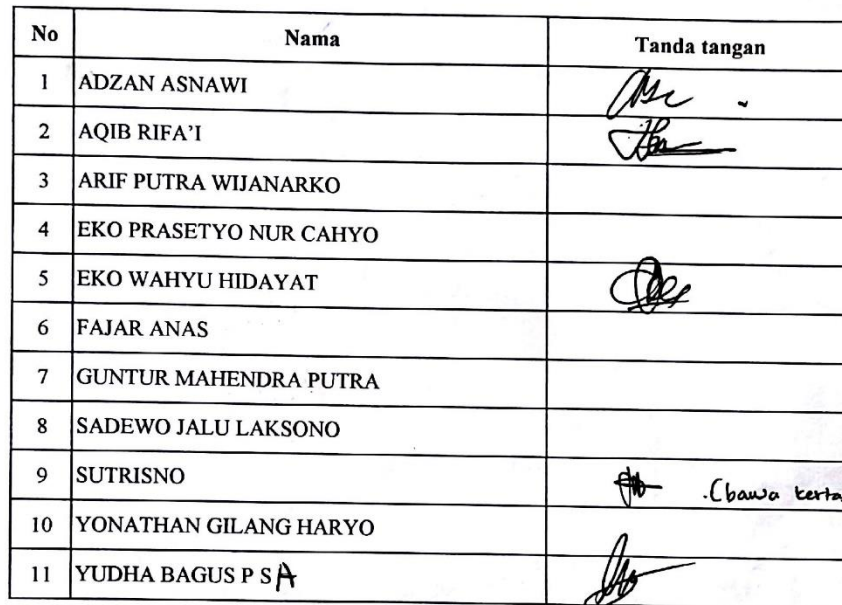 No Nama Tanda tangan
1 ADZAN ASNAWI
2 AQIB RIFA'I
3 ARIF PUTRA WIJANARKO
4 EKO PRASETYO NUR CAHYO
5 EKO WAHYU HIDAYAT
6 FAJAR ANAS
7 GUNTUR MAHENDRA PUTRA
8 SADEWO JALU LAKSONO
9 SUTRISNO (bawa kerta
10 YONATHAN GILANG HARYO
11 YUDHA BAGUS P S A